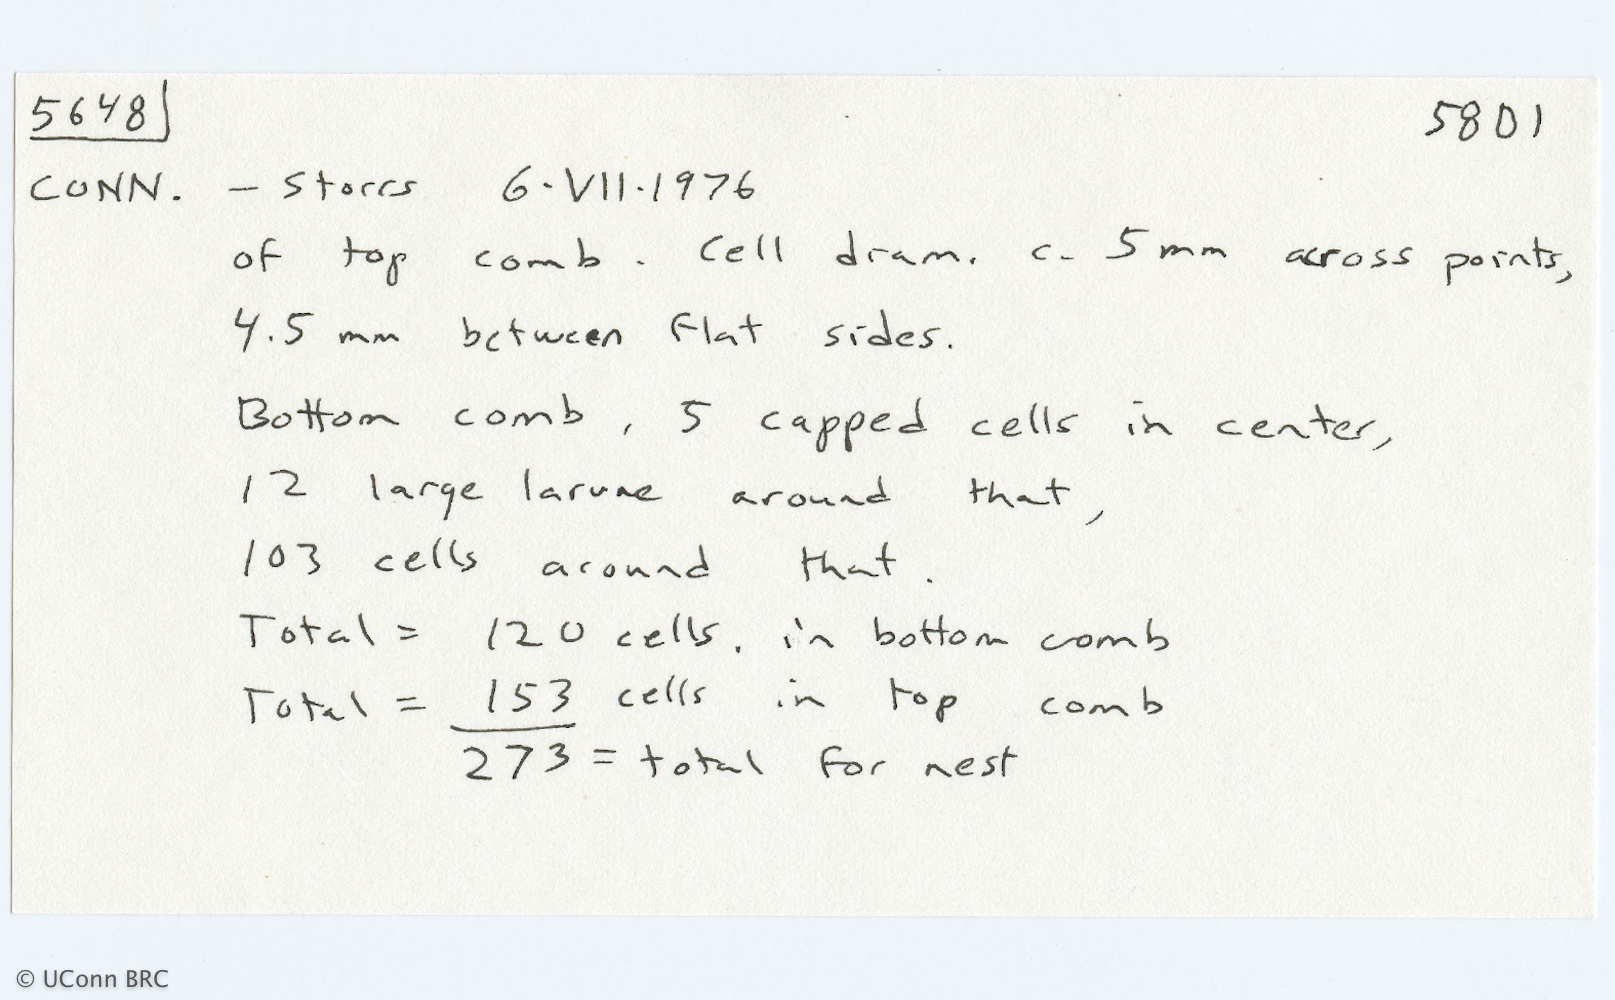 5648 5801
CONN. - Storrs 6.VII.1976
of top comb. Cell diam. c. 5 mm across points,
4.5 mm between flat sides.
Bottom comb, 5 capped cells in center,
12 large larvae around that,
103 cells around that.
Total = 120 cells. in bottom comb
Total = 153 cells in top comb
273 = total for nest
© UConn BRC